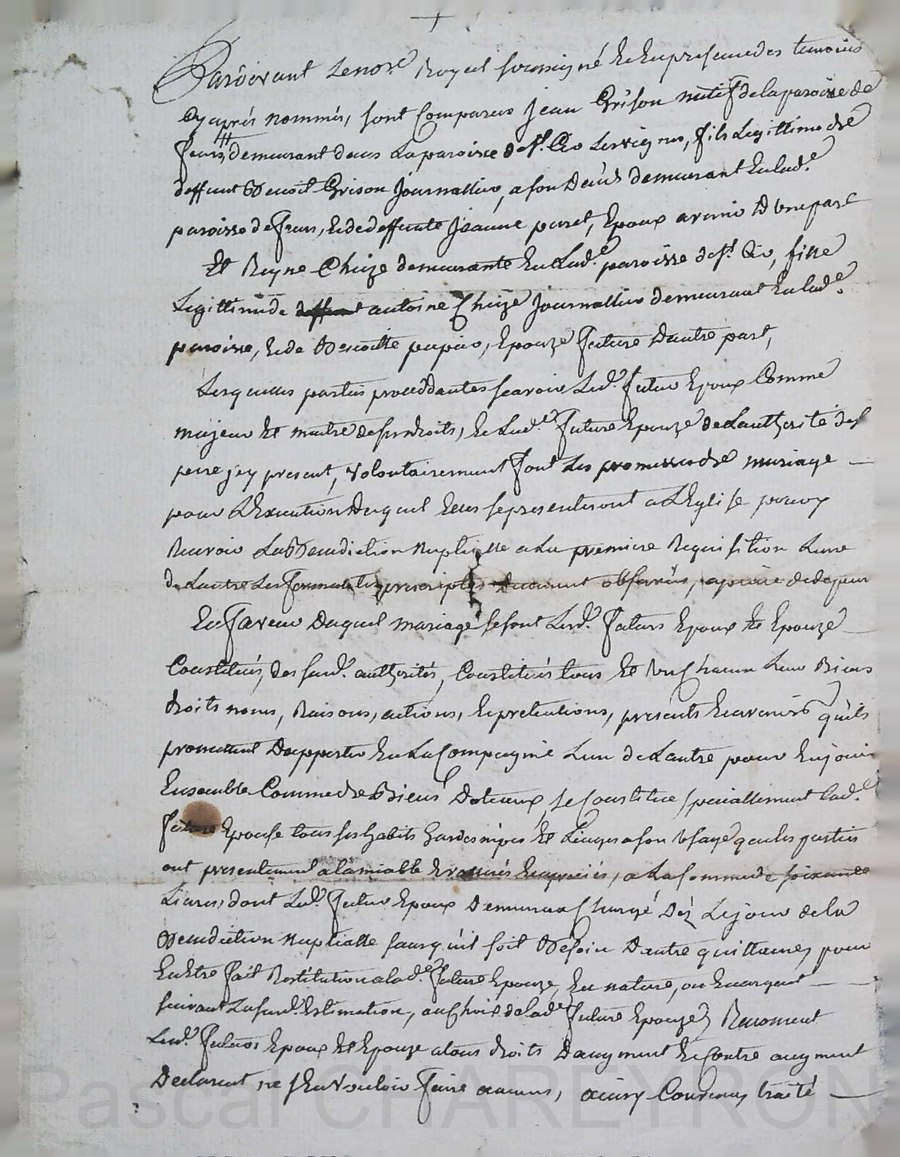 Pardevant Le no.re Royal soussigné Et En presence des temoins
Cy après nommés, sont Comparus Jean Grison natif de la paroisse de
feurs, demeurant dans La paroisse de s.t Cir Les vignes, fils Legittime de
deffunt Benoit Grison Journallier, a son Decés demeurant En lad.e
paroisse de feurs, Et de deffunte Jeanne Epoux avenir D'une part
Et Reyne Chize demeurante En Lad.e paroisse de s.t Cir, fille
Legittime de antoine Chize Journallier demeurant En lad.e
paroisse, Et de Benoitte papier, Epouze future D'autre part,
Lesquelles parties proceddantes scavoir Led.t futur Epoux Comme
majeur Et maitre de ses droits, Et Lad.e future Epouze de L'authorité de s
pere jcy present, volontairement font Les promesses de mariage
pour L'Execution Duquel Elles se presenteront a L'Eglise pour y
Recevoir La Benediction Nuptialle a La premiere Requisition L'une
de L'autre Les formalités prescriptes Duement observées, a peine de depens
En faveur Duquel mariage se sont Lesd.ts futurs Epoux Et Epouze
Constitués, des sud.t authorités, Constitués tous Et Un Chacun Leur Biens
droits noms, Raisons, actions, Et pretentions, presents Et avenirs qu'ils
promettent D'apporter En La Compagnie L'un de L'autre pour En jouir
Ensemble Comme de Biens Dotaux se Constitue specialement Lad.e
future Epouse tous ses habits hardes nipes Et Linges a son Usage que les parties
ont presentement a l'amiable Evalués Et apreciés, a La somme de soixante
Livres, dont Led.t futur Epoux Demeurera Chargé Déz Le jour de la
Benediction Nuptialle sans qu'il soit Besoin D'autre quittance, pour
En Etre fait Restitution a lad.e future Epouze, En nature, ou En argent
suivant La sud.e Estimation, au Choix de lad.e future Epouze, Renoncent
Lesd.ts futurs Epoux Et Epouze a tous droits D'augment Et Contre augment
Declarant ne s'En vouloir faire aucuns, ainsy Convenu, traité
Pascal CHAREYRON